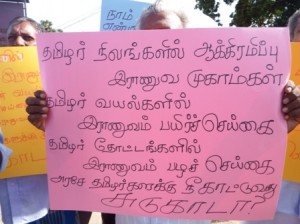 நாம்
தமிழர் நிலங்களில் ஆக்கிரமிப்பு
இராணுவ முகாம்கள்
தமிழர் வயல்களில்
இராணுவம் பயிர்செய்கை
தமிழர் தோட்டங்களில்
இராணுவம் பழச் செய்கை
அரசே தமிழர்களுக்கு நீ காட்டுவது
சுடுகாடா?